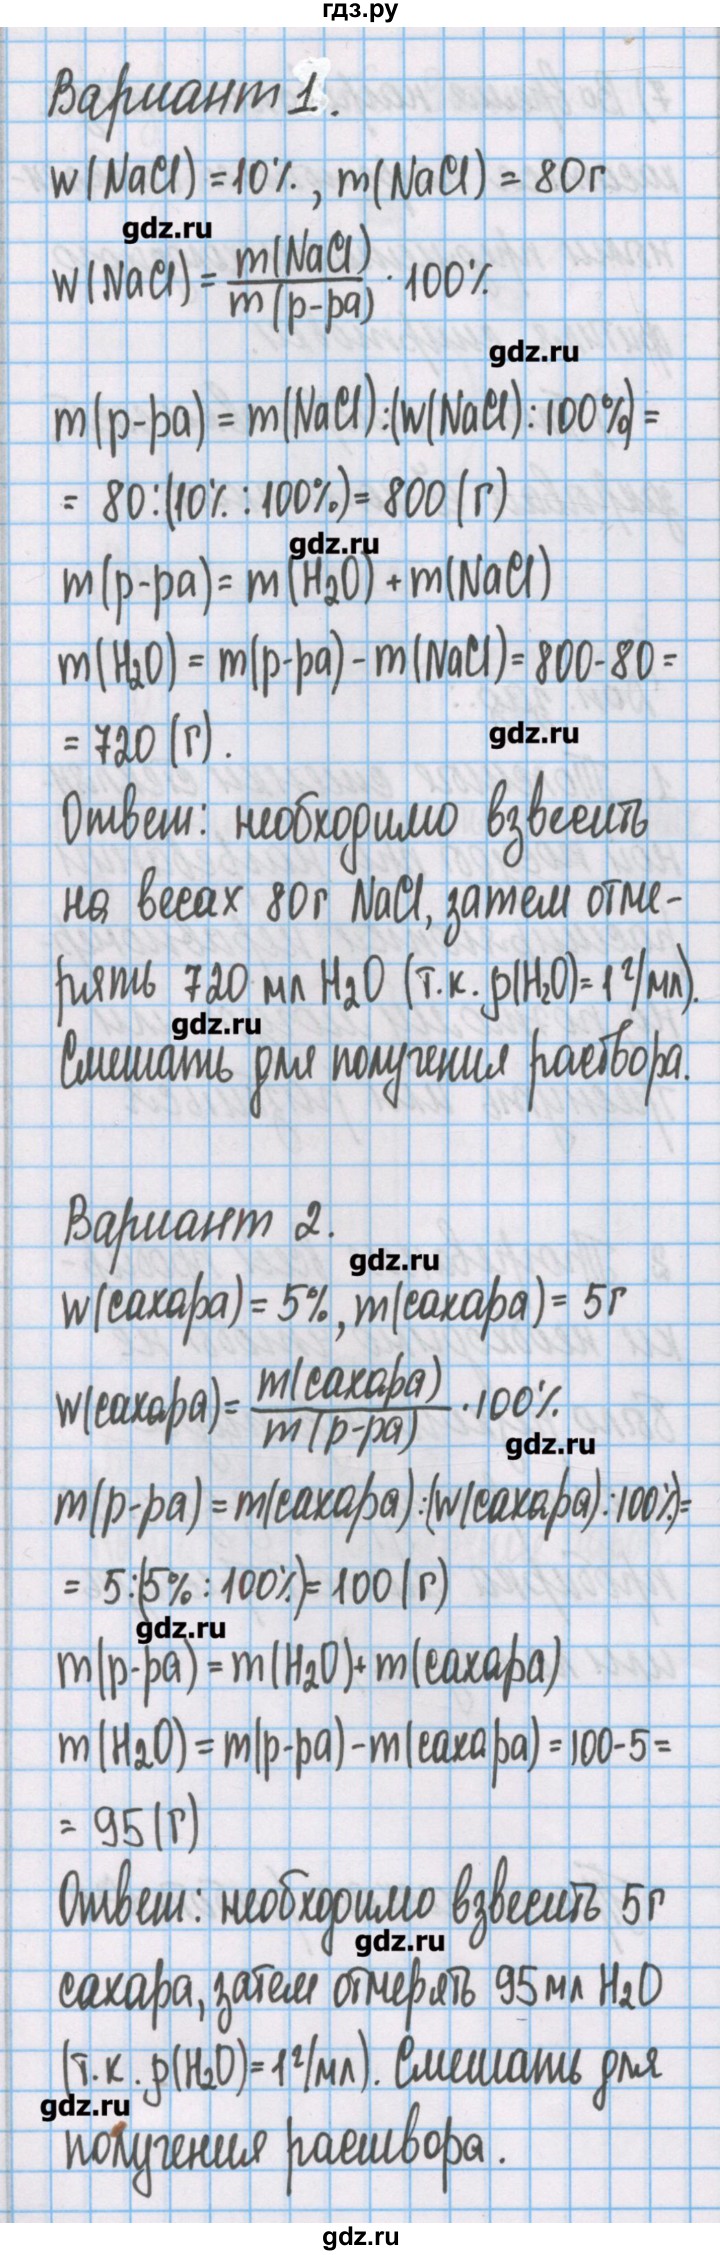 гдз.ру
Вариант 1.
w(NaCl) = 10%, m(NaCl) = 80г
gdz.ru
w(NaCl) = m(NaCl) / m(р-ра) · 100%
gdz.ru
m(р-ра) = m(NaCl):(w(NaCl):100%) =
= 80:(10% : 100%) = 800 (г)
gdz.ru
m(р-ра) = m(H₂O) + m(NaCl)
m(H₂O) = m(р-ра) - m(NaCl) = 800-80 =
= 720 (г).
gdz.ru
Ответ: необходимо взвесить
на весах 80г NaCl, затем отме-
рять 720 мл H₂O (т.к. ρ(H₂O)=1 г/мл).
gdz.ru
Смешать для получения раствора.
Вариант 2.
gdz.ru
w(сахара) = 5%, m(сахара) = 5г
w(сахара) = m(сахара) / m(р-ра) · 100%
gdz.ru
m(р-ра) = m(сахара):(w(сахара):100%) =
= 5:(5% : 100%) = 100 (г)
gdz.ru
m(р-ра) = m(H₂O) + m(сахара)
m(H₂O) = m(р-ра) - m(сахара) = 100-5 =
= 95 (г)
Ответ: необходимо взвесить 5г
gdz.ru
сахара, затем отмерять 95 мл H₂O
(т.к. ρ(H₂O)=1 г/мл). Смешать для
gdz.ru
получения раствора.
gdz.ru